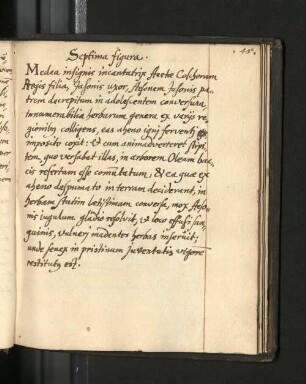 45.
Septima figura.
Medea insignis incantatrix Aectæ Colchorum
Regis filia, Jasonis uxor, Aesonem Jasonis pa-
trem decrepitum in adolescentem conversura,
innumerabilia herbarum genera ex varijs re-
gionibus colligens, eas aheno igni ferventi
imposito coxit: et cum animadverteret stipi-
tem, quo versabat illas, in arborem Oleam bac-
cis refertam esse comutatum, & ea quæ ex
aheno despumato in terram deciderant, in
herbam statim lætissimam conversa, mox Aeso-
nis iugulum gladio resolvit, et loco effusi san-
guinis, vulneri madentes herbas inseruit;
unde senex in pristinum Juventutis vigorem
restitutus est.